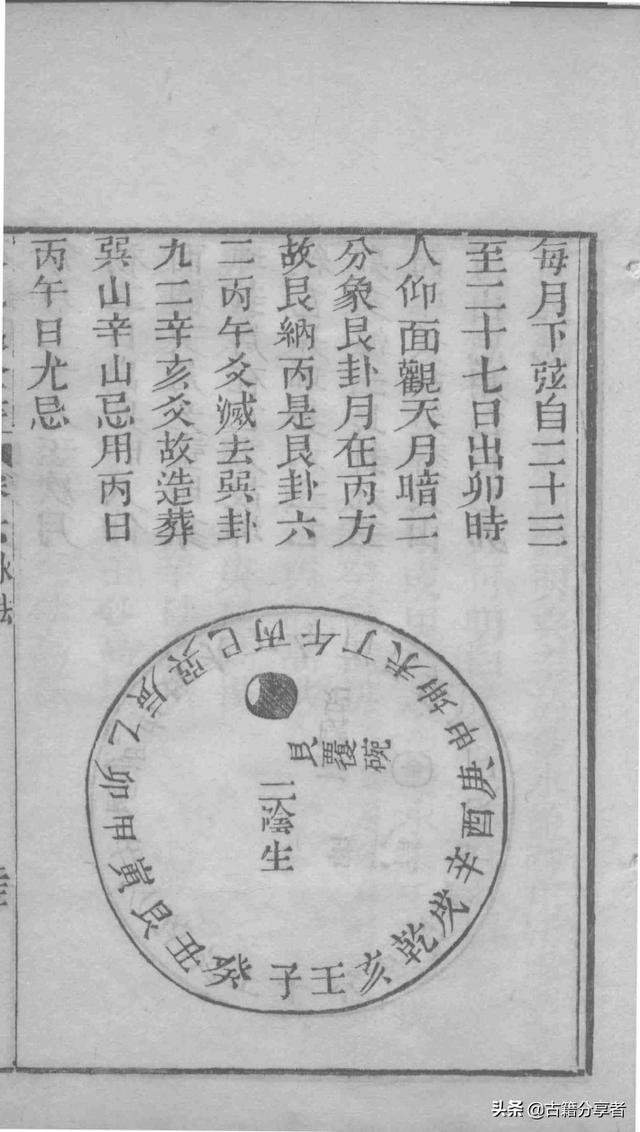 每月下弦自二十三
至二十七日出卯時
人仰面觀天月暗二
分象艮卦月在丙方
故艮納丙是艮卦六
二丙午爻滅去巽卦
九二辛亥爻故造葬
巽山辛山忌用丙日
丙午日尤忌
巽巳丙午丁未坤申庚酉辛戌乾亥壬子癸丑艮寅甲卯乙辰
艮覆碗
二陰生
头条 @古籍分享者